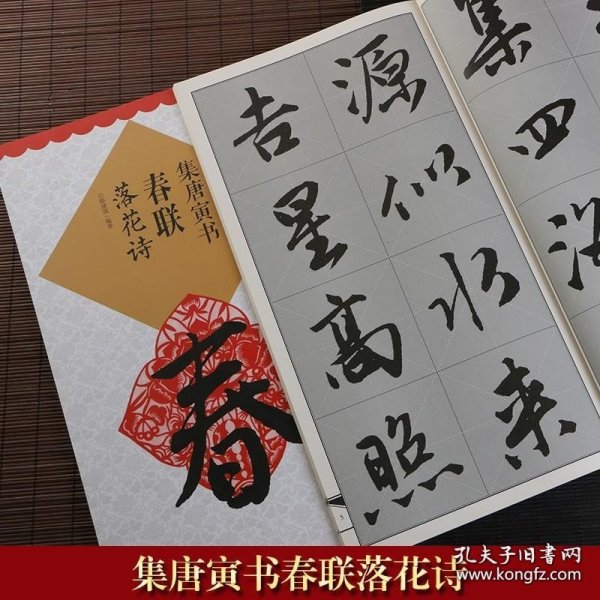 集唐寅书
春联
落花诗
编著
春
源似水来
吉星高照
集
四
5
集唐寅书春联落花诗
孔夫子旧书网
www.kongfz.com